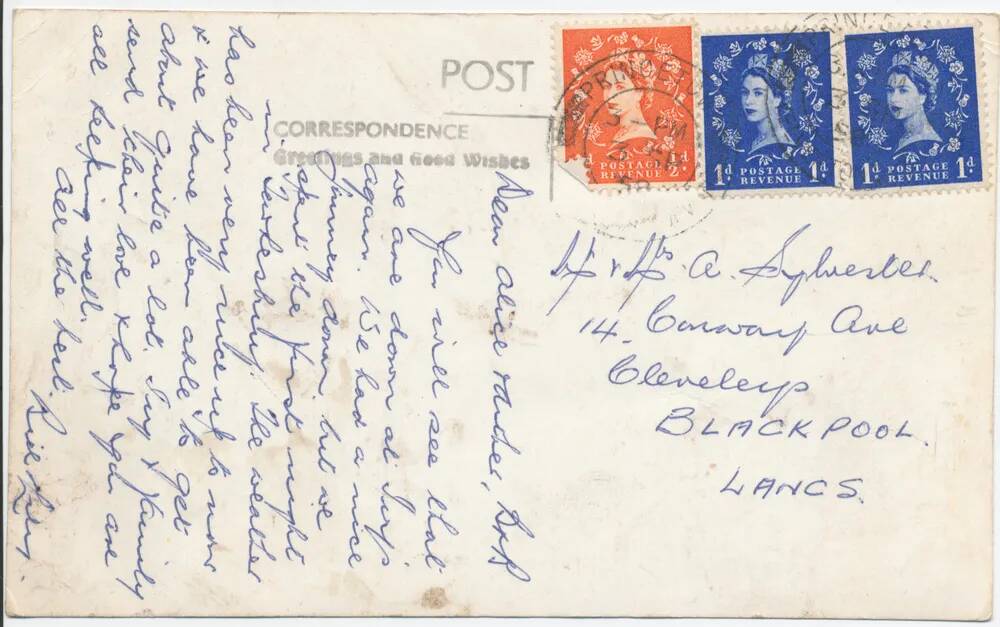 POST
CORRESPONDENCE
Greetings and Good Wishes
PRINCETOWN
3 - PM
½d
POSTAGE
REVENUE
1d 1d
POSTAGE
REVENUE
1d 1d
POSTAGE
REVENUE
Mr & Mrs A. Sylvester.
14. Conway Ave
Cleveleys
BLACKPOOL.
LANCS.
Dear Alice Arthur,
You will see that
we are down at
again. We had a nice
journey down, but we
spent the first night
in Tewkesbury. The weather
has been very nice up to now
& we have been able to get
about quite a lot. & family
send their love & hope you are
all keeping well.
All the best.